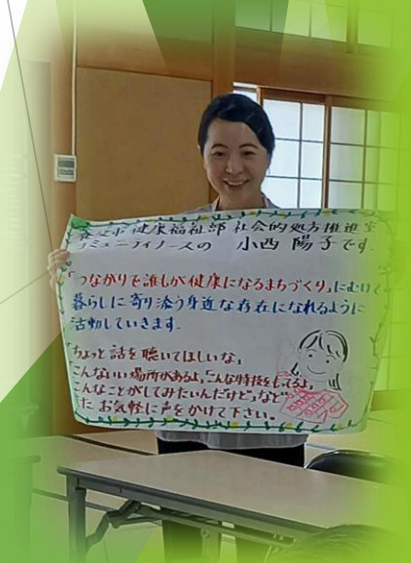 養父市健康福祉部 社会的処方推進室
コミュニティナースの 小西 陽子です。
「つながりで誰もが健康になるまちづくり」にむけて
暮らしに寄り添う身近な存在になれるように
活動していきます。
「ちょっと話を聴いてほしいな」
「こんないい場所があるよ」「こんな特技をもってるよ」
「こんなことがしてみたいんだけど」など
お気軽に声をかけて下さい。